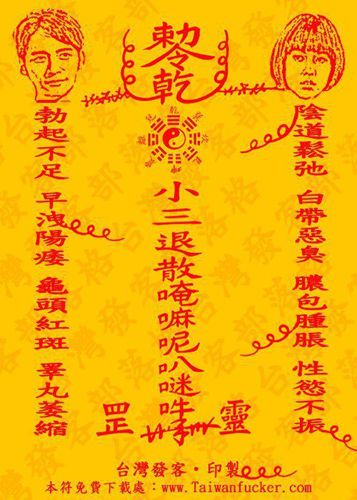 勅令
乾
陰道鬆弛 白帶惡臭 膿包腫脹 性慾不振
小三退散唵嘛呢叭咪吽
勃起不足 早洩陽痿 龜頭紅斑 睪丸萎縮
罡 靈
台灣發客・印製
本符免費下載處：www.Taiwanfucker.com
台灣發客部落格